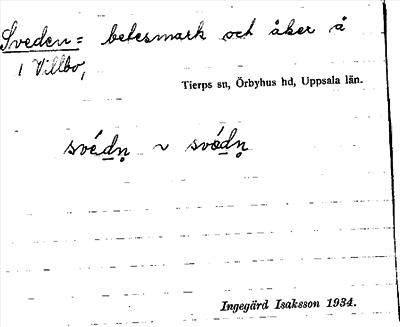 Sveden = betesmark och åker å
1 Villbo,
Tierps sn, Örbyhus hd, Uppsala län.
svédṇ ~ svǿdṇ
Ingegärd Isaksson 1934.